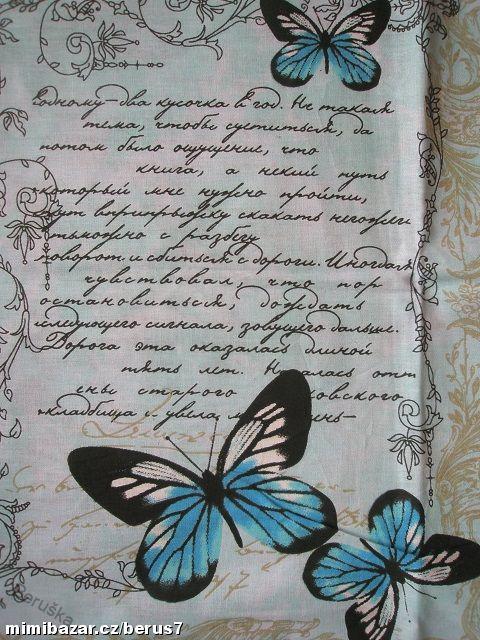 одному-два кусочка в год. Не такая
тема, чтобы суетиться, да
потом было ощущение, что
книга, а некий путь
который мне нужно пройти,
тут вприпрыжку скакать негоже
с разбегу
поворот и сбиться с дороги. Иногда я
чувствовал, что пор
остановиться, дождать
следующего сигнала, зовущего дальше.
Дорога эта оказалась длиной
пять лет. Началась от
ены старого ковского
кладбища и увела
Beruška
mimibazar.cz/berus7